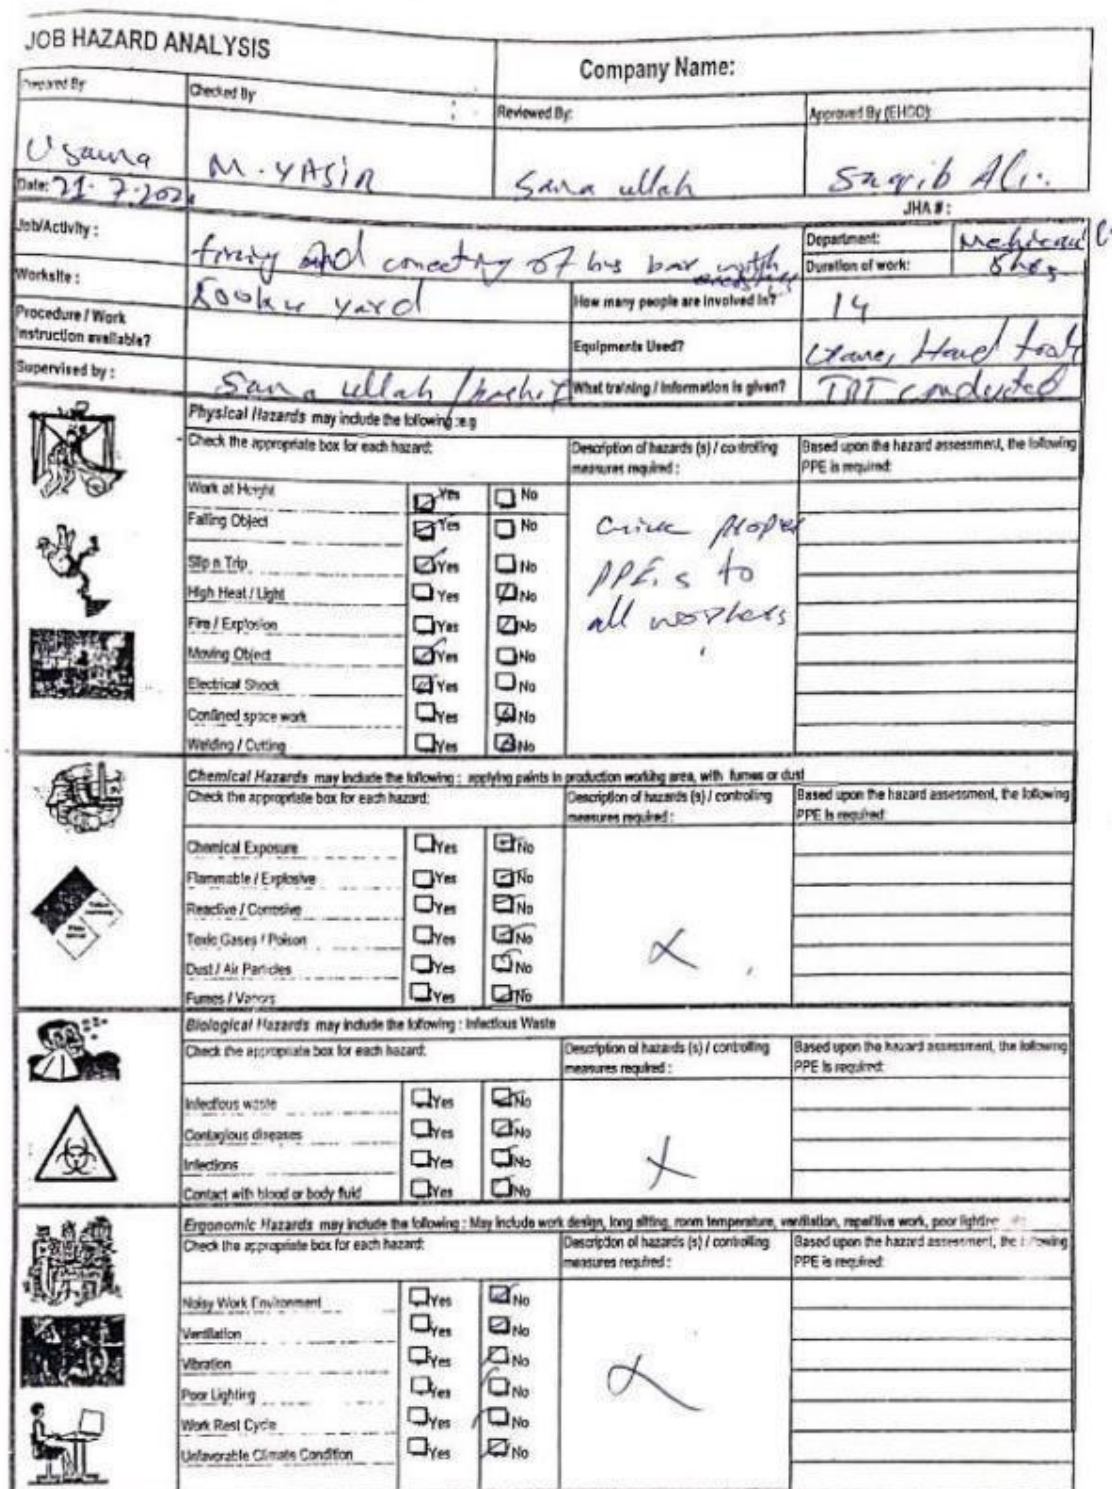 JOB HAZARD ANALYSIS
Company Name:
Prepared By
Checked By
Reviewed By:
Approved By (EHCC):
Usama
M. YASIR
Sana ullah
Saqib Ali.
Date: 21.7.202
JHA #:
Job/Activity :
and of bus bar with
Department:
Duration of work:
Worksite :
yard
How many people are involved in?
14
Procedure / Work
Instruction available?
Equipments Used?
Hand tools
Supervised by :
Sana ullah /
What training / Information is given?
TBT conducted
Physical Hazards may include the following :e.g
Check the appropriate box for each hazard:
Description of hazards (s) / controlling
measures required :
Based upon the hazard assessment, the following
PPE is required:
Work at Height Yes No
Falling Object Yes No
Slip n Trip Yes No
High Heat / Light Yes No
Fire / Explosion Yes No
Moving Object Yes No
Electrical Shock Yes No
Confined space work Yes No
Welding / Cutting Yes No
proper
PPE,s to
all workers
Chemical Hazards may include the following : applying paints in production working area, with fumes or dust
Check the appropriate box for each hazard:
Description of hazards (s) / controlling
measures required :
Based upon the hazard assessment, the following
PPE is required:
Chemical Exposure Yes No
Flammable / Explosive Yes No
Reactive / Corrosive Yes No
Toxic Gases / Poison Yes No
Dust / Air Particles Yes No
Fumes / Vapors Yes No
Biological Hazards may include the following : Infectious Waste
Check the appropriate box for each hazard:
Description of hazards (s) / controlling
measures required :
Based upon the hazard assessment, the following
PPE is required:
Infectious waste Yes No
Contagious diseases Yes No
Infections Yes No
Contact with blood or body fluid Yes No
Ergonomic Hazards may include the following : May include work design, long sitting, room temperature, ventilation, repetitive work, poor lighting
Check the appropriate box for each hazard:
Description of hazards (s) / controlling
measures required :
Based upon the hazard assessment, the following
PPE is required:
Noisy Work Environment Yes No
Ventilation Yes No
Vibration Yes No
Poor Lighting Yes No
Work Rest Cycle Yes No
Unfavorable Climate Condition Yes No